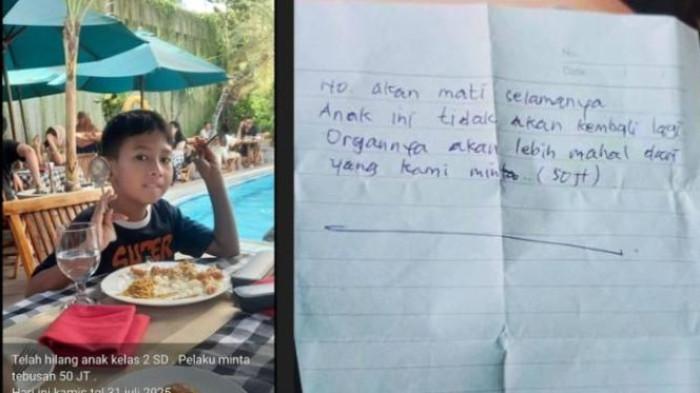 SUPER
Telah hilang anak kelas 2 SD . Pelaku minta
tebusan 50 JT .
Hari ini kamis tgl 31 juli 2025
No.
Date
No. akan mati selamanya
Anak ini tidak akan kembali lagi
Organnya akan lebih mahal dari
yang kami minta. (50 jt)